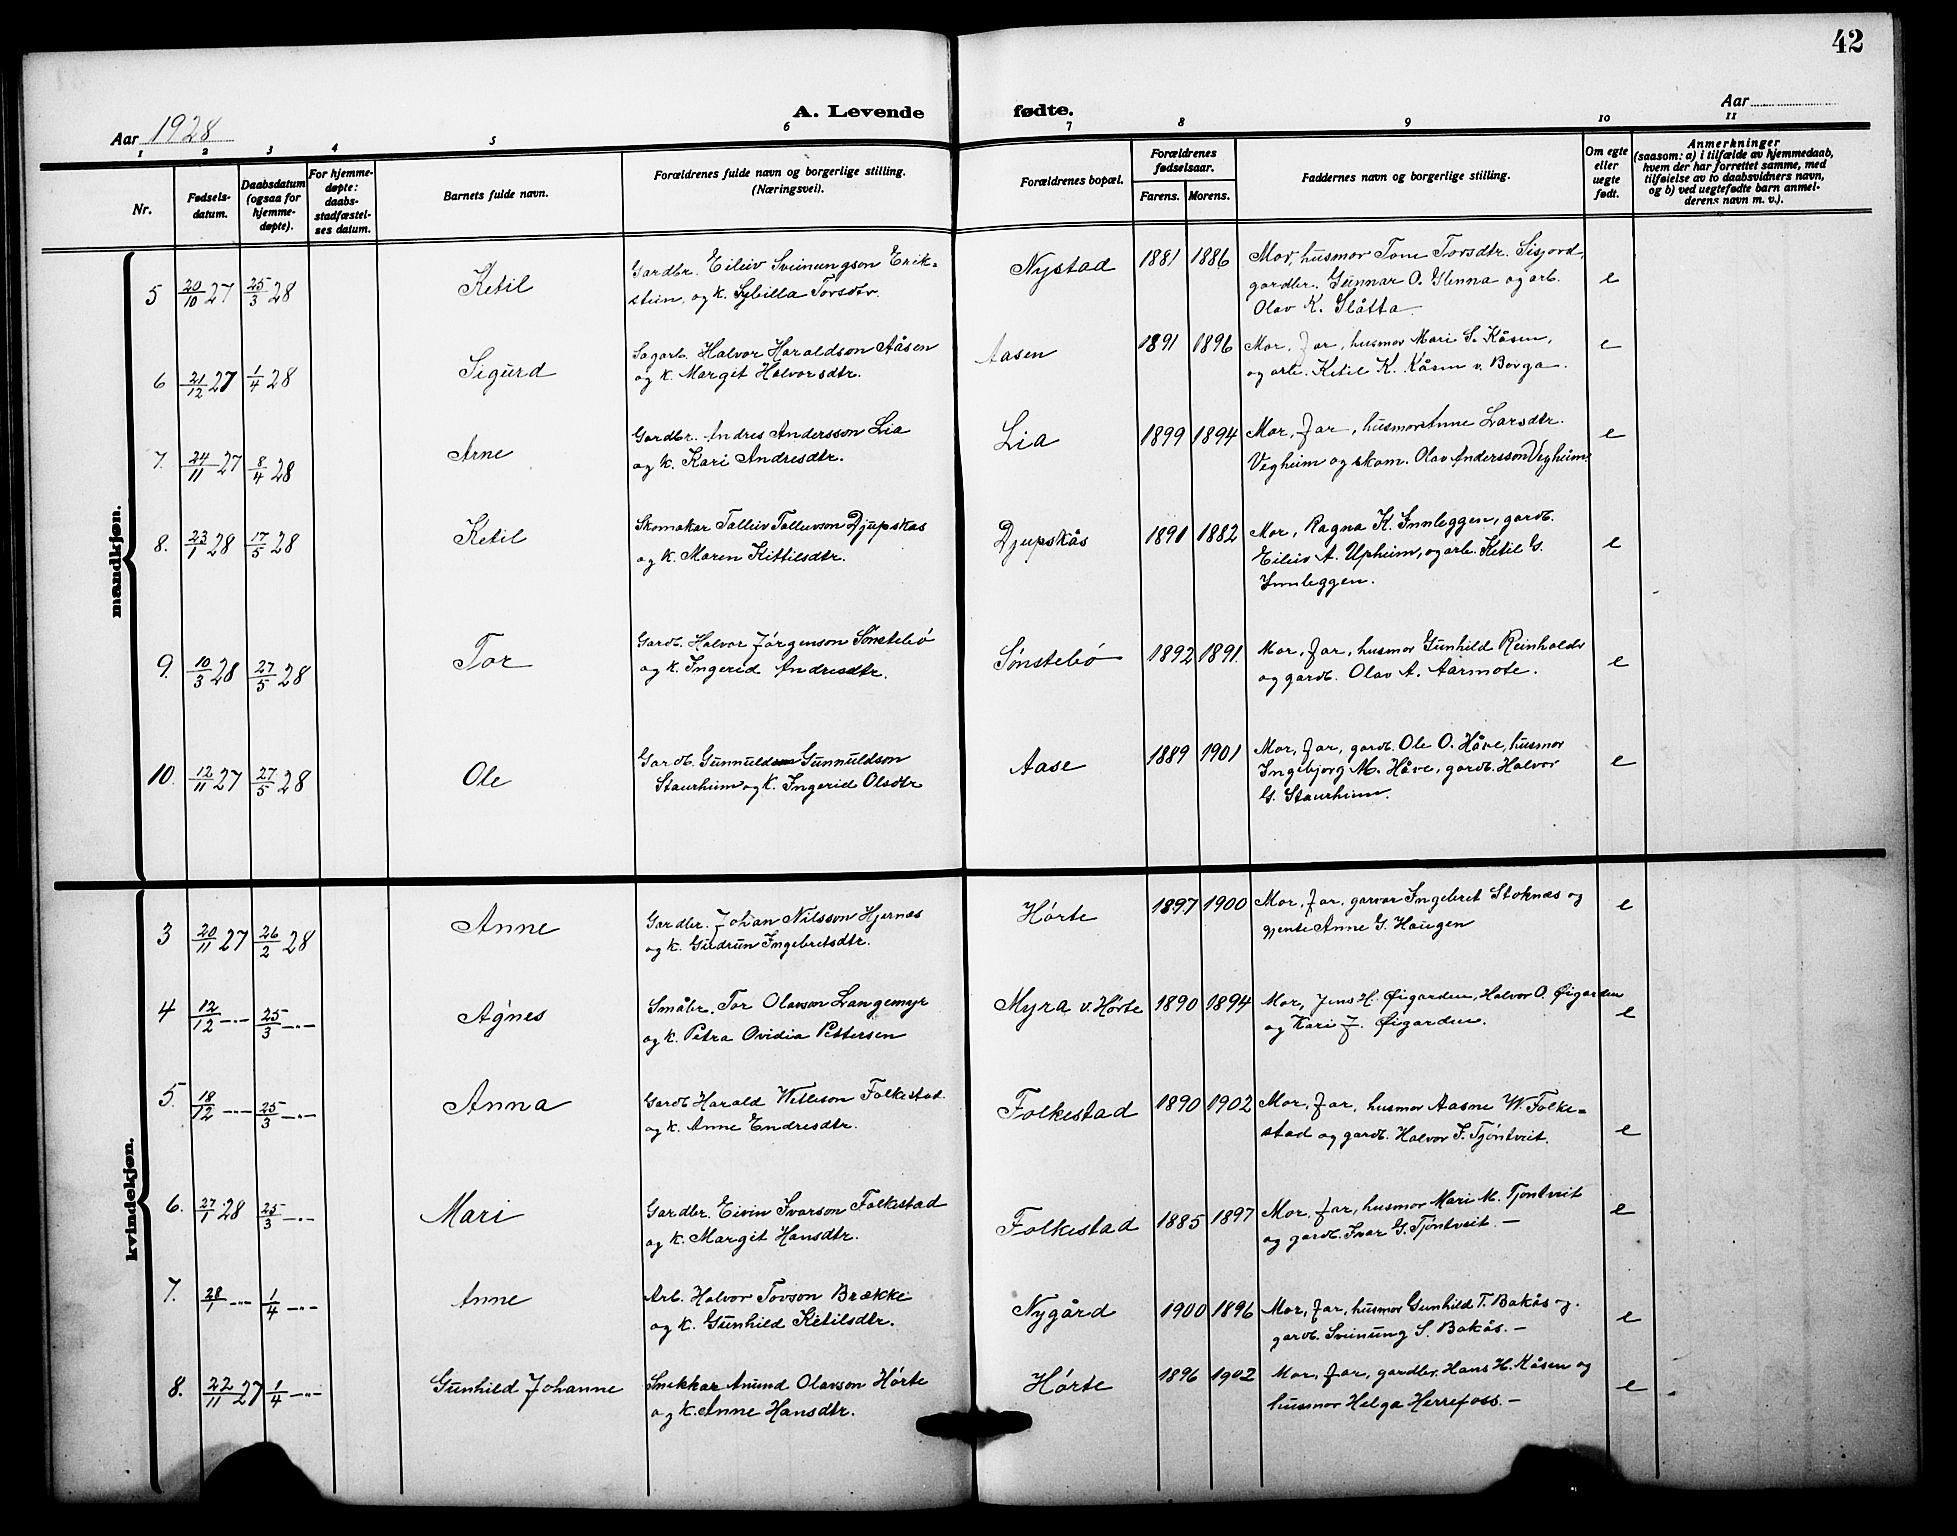 42
Aar 1928
A. Levende fødte.
Aar
1 2 3 4 5 6 7 8 9 10 11
Nr.
Fødsels-
datum.
Daabsdatum
(ogsaa for
hjemme-
døpte).
For hjemme-
døpte:
daabs-
stadfæstel-
ses datum.
Barnets fulde navn.
Forældrenes fulde navn og borgerlige stilling.
(Næringsvei).
Forældrenes bopæl.
Forældrenes
fødselsaar.
Farens. Morens.
Faddernes navn og borgerlige stilling.
Om egte
eller
uegte
født.
Anmerkninger
(saasom: a) i tilfælde av hjemmedaab,
hvem der har forrettet samme, med
tilføielse av to daabsvidners navn,
og b) ved uegtefødte barn anmel-
derens navn m. v.).
mandkjøn.
5 20/10 27 25/3 28 Ketil
Gardbr. Eileiv Sveinungson Erik=
stein, og k. Sybilla Torsdtr.
Nystad 1881 1886
Mor, husmor Tone Torsdtr. Sisjord,
gardbr. Gunnar O. Glenna og arb.
Olav K. Slåtta
e
6 21/12 27 1/4 28 Sigurd
Sagarb. Halvor Haraldson Aåsen
og k. Margit Halvorsdtr.
Aasen 1891 1896
Mor, Far, husmor Mari S. Kåsen,
og arb. Ketil K. Kåsen v. Borga.
e
7. 24/11 27 8/4 28 Arne
Gardbr. Andres Andersson Lia
og k. Kari Andresdtr.
Lia 1899 1894
Mor, Far, husmor Anne Larsdtr.
Vegheim og skom. Olav Andersson Vegheim.
e
8. 23/1 28 17/5 28 Ketil
Skomakar Tolleiv Tolleivson Djupskås
og k. Maren Kittilsdtr.
Djupskås 1891 1882
Mor, Ragna K. Innleggen, gardb.
Eileiv A. Upheim, og arb. Ketil G.
Innleggen.
e
9. 10/3 28 27/5 28 Tor
Gardb. Halvor Jörgenson Sønstebö
og k. Ingerid Andresdtr.
Sønstebö 1892 1891.
Mor, Far, husmor Gunhild Reinholds
og gardb. Olav A. Aarmote.
e
10. 12/11 27 27/5 28 Ole
Gardb. Gunnuld Gunnuldson
Staurheim og k. Ingerid Olsdtr
Aase 1889 1901
Mor, Far, gardb. Ole O. Håve, husmor
Ingebjorg M. Håve, gardb. Halvor
G. Staurheim.
e
kvindekjøn.
3 20/11 27 26/2 28 Anne
Gardbr. Johan Nilsson Hjernes
og k. Gudrun Ingebretsdtr.
Hörte 1897 1900
Mor, Far, garvar Ingebret Stoknæs og
gjente Anne G. Haugen
e
4 12/12 -"- 25/3 -"- Agnes
Småbr. Tor Olavson Langemyr
og k. Petra Ovidia Pettersen
Myra v. Hörte 1890 1894
Mor, Jens H. Øigarden, Halvor O. Øigarden
og Kari J. Øigarden.
e
5. 18/12 -"- 25/3 -"- Anna
Gardb. Harald Wetleson Folkestad
og k. Anne Endresdtr.
Folkestad 1890 1902
Mor, Far, husmor Aasne W. Folke=
stad og gardb. Halvor F. Tjöntveit.
e
6. 27/1 28 25/3 -"- Mari
Gardbr. Eivin Ivarson Folkestad
og k. Margit Hansdtr.
Folkestad 1885 1897
Mor, Far, husmor Mari M. Tjöntveit
og gardb. Ivar G. Tjöntveit. —
e
7. 28/1 -"- 1/4 -"- Anne
Arb. Halvor Tovson Brække
og k. Gunhild Ketilsdtr.
Nygård 1900 1896
Mor, Far, husmor Gunhild T. Bakås og
gardb. Sveinung S. Bakås. —
e
8. 22/11 27 1/4 -"- Gunhild Johanne
Snekkar Amund Olavson Hörte
og k. Anne Hansdtr.
Hörte 1896 1902
Mor, Far, gardbr. Hans H. Kåsen og
husmor Helga Herrefoss. —
e